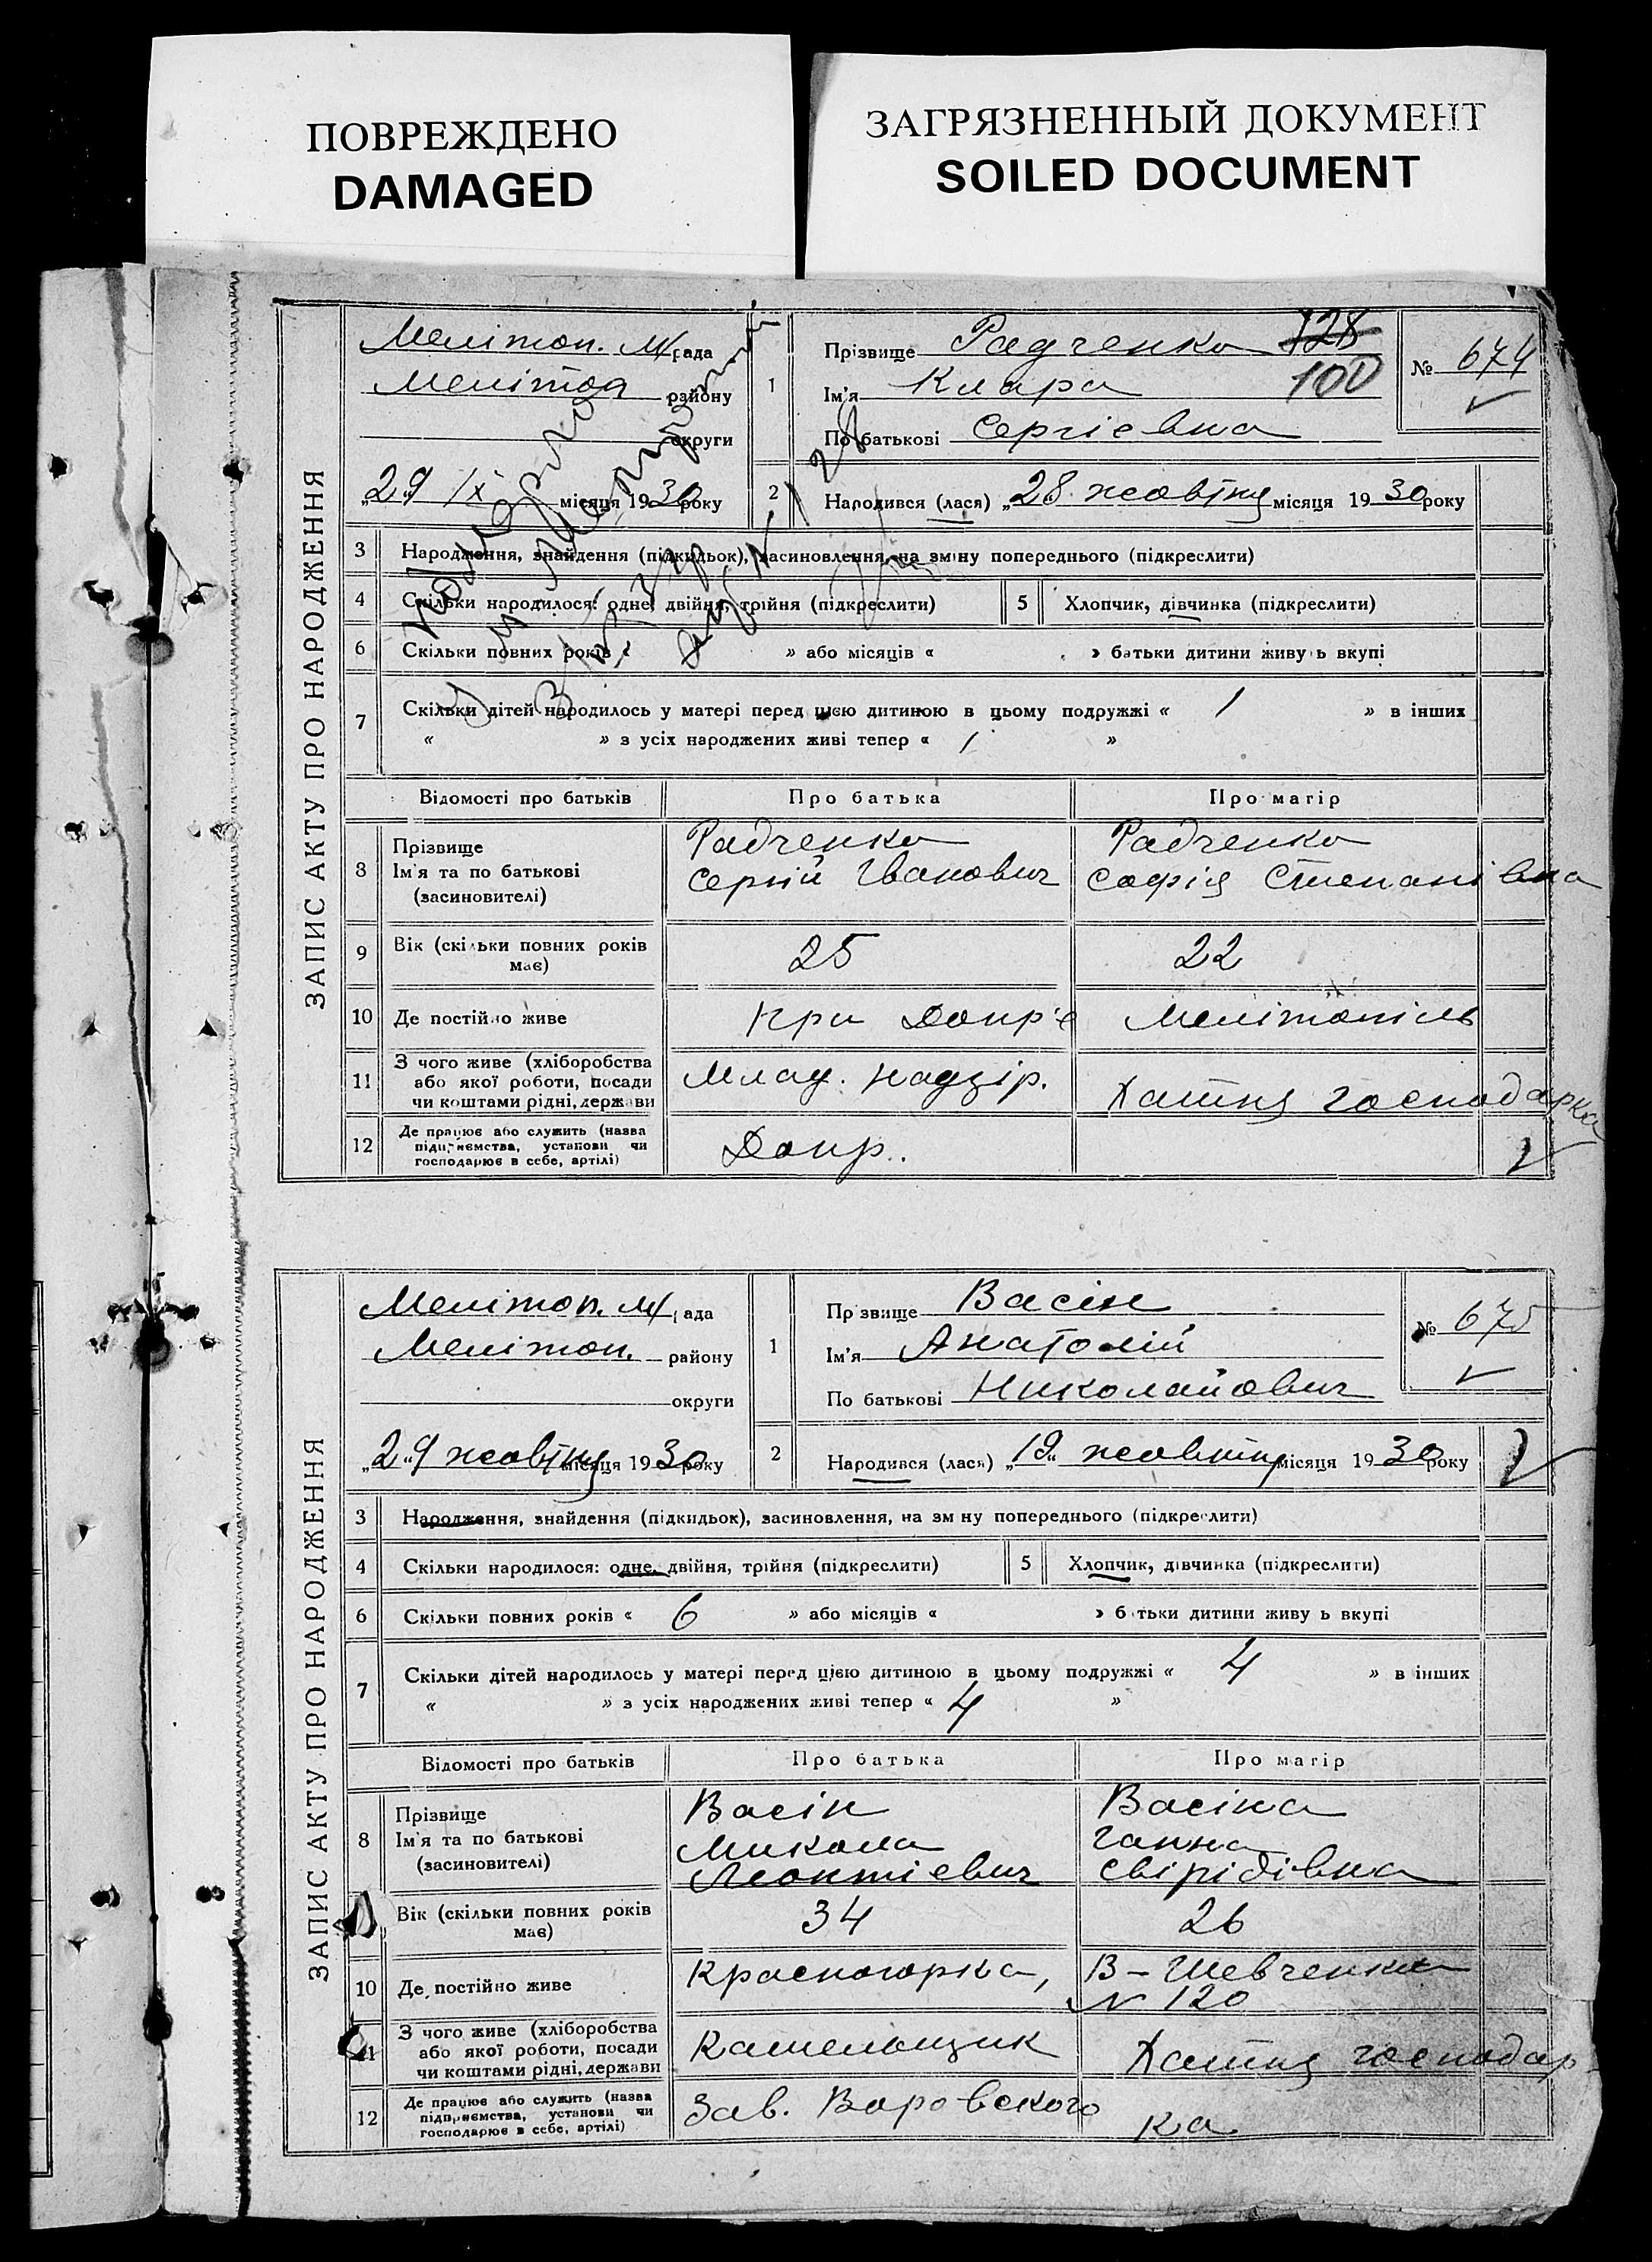 ПОВРЕЖДЕНО
DAMAGED
ЗАГРЯЗНЕННЫЙ ДОКУМЕНТ
SOILED DOCUMENT
ЗАПИС АКТУ ПРО НАРОДЖЕННЯ
Мелітоп. М/рада
Мелітоп району
округи
„29 ІХ місяця 1930 року
1
Прізвище Радченко 128
Ім'я Клара 100
По батькові Сергієвна
№ 674
2
Народився (лася) „28 жовтня місяця 1930 року
3 Народження, знайдення (підкидьок), засиновлення, на зміну попереднього (підкреслити)
4 Скільки народилося: одне, двійня, трійня (підкреслити) 5 Хлопчик, дівчинка (підкреслити)
6 Скільки повних років « » або місяців « » батьки дитини живуь вкупі
7 Скільки дітей народилось у матері перед цією дитиною в цьому подружжі « 1 » в інших
« » з усіх народжених живі тепер « 1 »
Відомості про батьків Про батька Про матір
8 Прізвище Радченко Радченко
Ім'я та по батькові Сергій Іванович Софія Степанівна
(засиновителі)
9 Вік (скільки повних років має) 25 22
10 Де постійно живе При Допр'є Мелітопіль
11 З чого живе (хліборобства
або якої роботи, посади
чи коштами рідні, держави Млад. надзір. Хатня господарка
12 Де працює або служить (назва
підприємства, установи чи
господарює в себе, артілі) Допр.
ЗАПИС АКТУ ПРО НАРОДЖЕННЯ
Мелітоп. М/рада
Мелітоп. району
округи
„29 жовтня місяця 1930 року
1
Прзвище Васін
Ім'я Анатолій
По батькові Николайович
№ 675
2
Народився (лася) „19„ жовтня місяця 1930 року
3 Народження, знайдення (підкидьок), засиновлення, на змну попереднього (підкреслити)
4 Скільки народилося: одне, двійня, трійня (підкреслити) 5 Хлопчик, дівчинка (підкреслити)
6 Скільки повних років « 6 » або місяців « » бтьки дитини живуь вкупі
7 Скільки дітей народилось у матері перед цією дитиною в цьому подружжі « 4 » в інших
« » з усіх народжених живі тепер « 4 »
Відомості про батьків Про батька Про матір
8 Прізвище Васін Васіна
Ім'я та по батькові Микола Ганна
(засиновителі) Леонтієвич Свірідівна
Вік (скільки повних років має) 34 26
10 Де постійно живе Красногорка, В-Шевченка
№ 120
11 З чого живе (хліборобства
або якої роботи, посади
чи коштами рідні, держави Камельщик Хатня господар-
12 Де працює або служить (назва
підприємства, установи чи
господарює в себе, артілі) Зав. Воровского ка